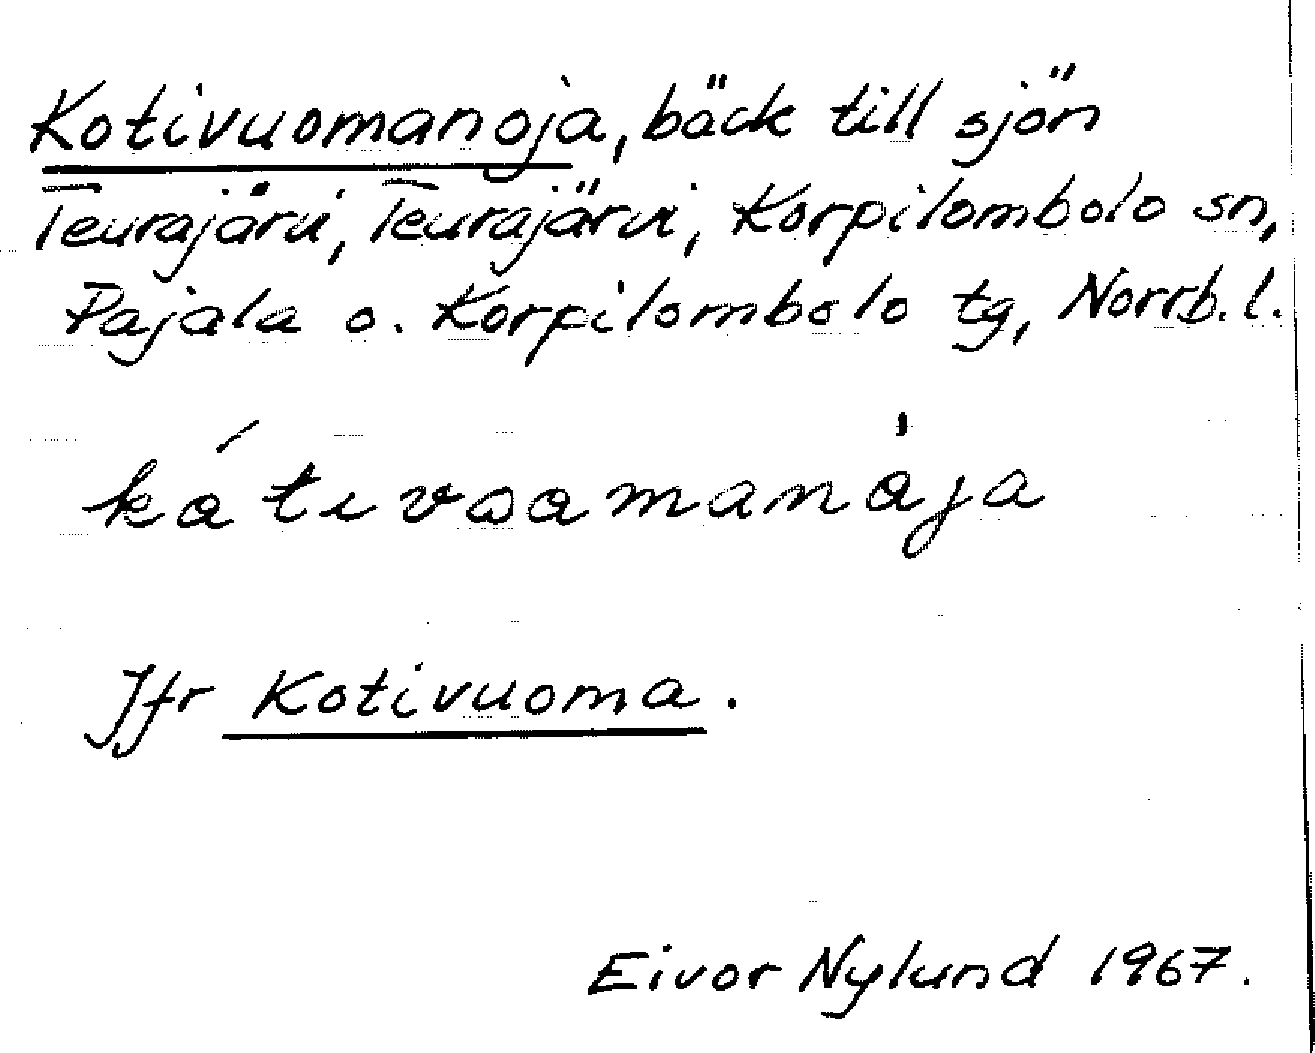 Kotivuomanoja, bäck till sjön
Teurajärvi, Teurajärvi, Korpilombolo sn,
Pajala o. Korpilombolo tg, Norrb. l.
Jfr Kotivuoma.
Eivor Nylund 1967.